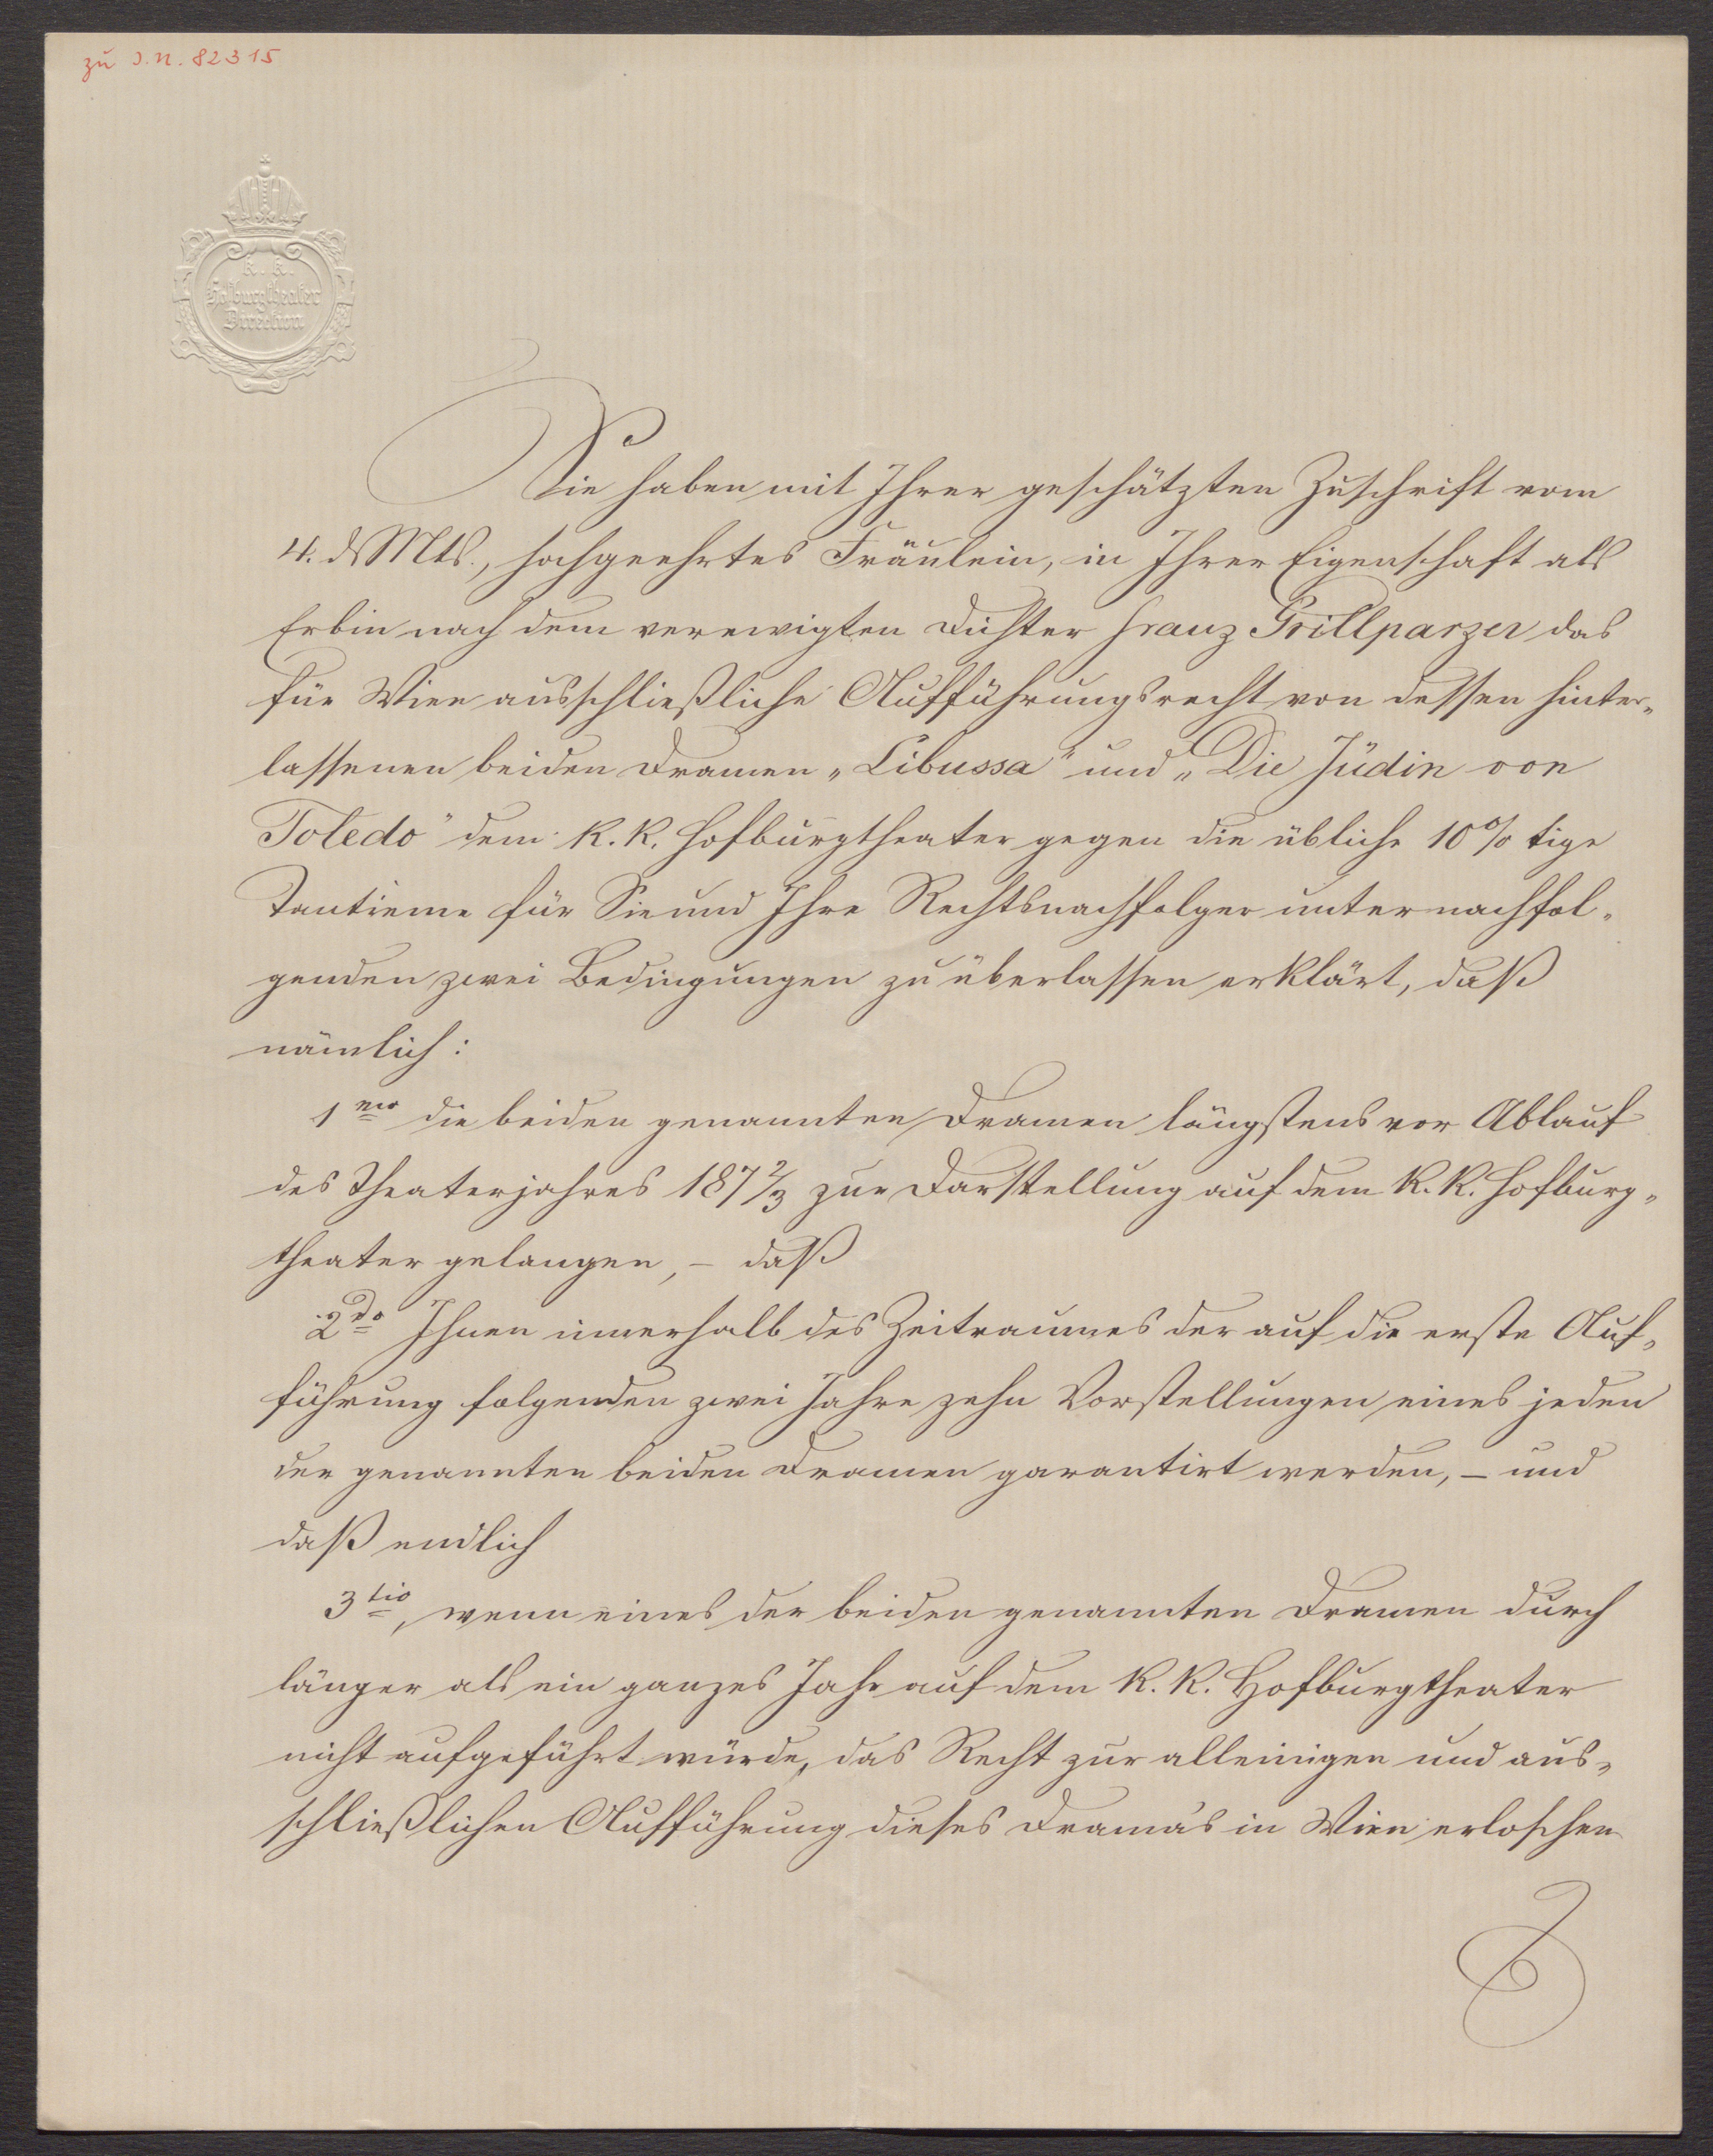 zu I.N. 82315
k. k.
Hofburgtheater
Direction
Sie haben mit Ihrer geschätzten Zuschrift vom
4. d Mts., hochgeehrtes Fräulein, in Ihrer Eigenschaft als
Erbin nach dem verewigten Dichter Franz Grillparzer das
für Wien ausschließliche Aufführungsrecht von dessen hinter„
lassenen beiden Dramen „Libussa" und „Die Jüdin von
Toledo" dem k. k. Hofburgtheater gegen die übliche 10% tige
Tantieme für Sie und Ihre Rechtsnachfolger unter nachfol„
genden zwei Bedingungen zu überlassen erklärt, daß
nämlich:
1mo die beiden genannten Dramen längstens vor Ablauf
des Theaterjahres 1872/3 zur Darstellung auf dem k. k. Hofburg„
theater gelangen, – daß
2do Ihnen innerhalb des Zeitraumes der auf die erste Auf„
führung folgenden zwei Jahre zehn Vorstellungen eines jeden
der genannten beiden Dramen garantirt werden, – und
daß endlich
3tio, wenn eines der beiden genannten Dramen durch
länger als ein ganzes Jahr auf dem k. k. Hofburgtheater
nicht aufgeführt würde, das Recht zur alleinigen und aus„
schließlichen Aufführung dieses Drama's in Wien erloschen